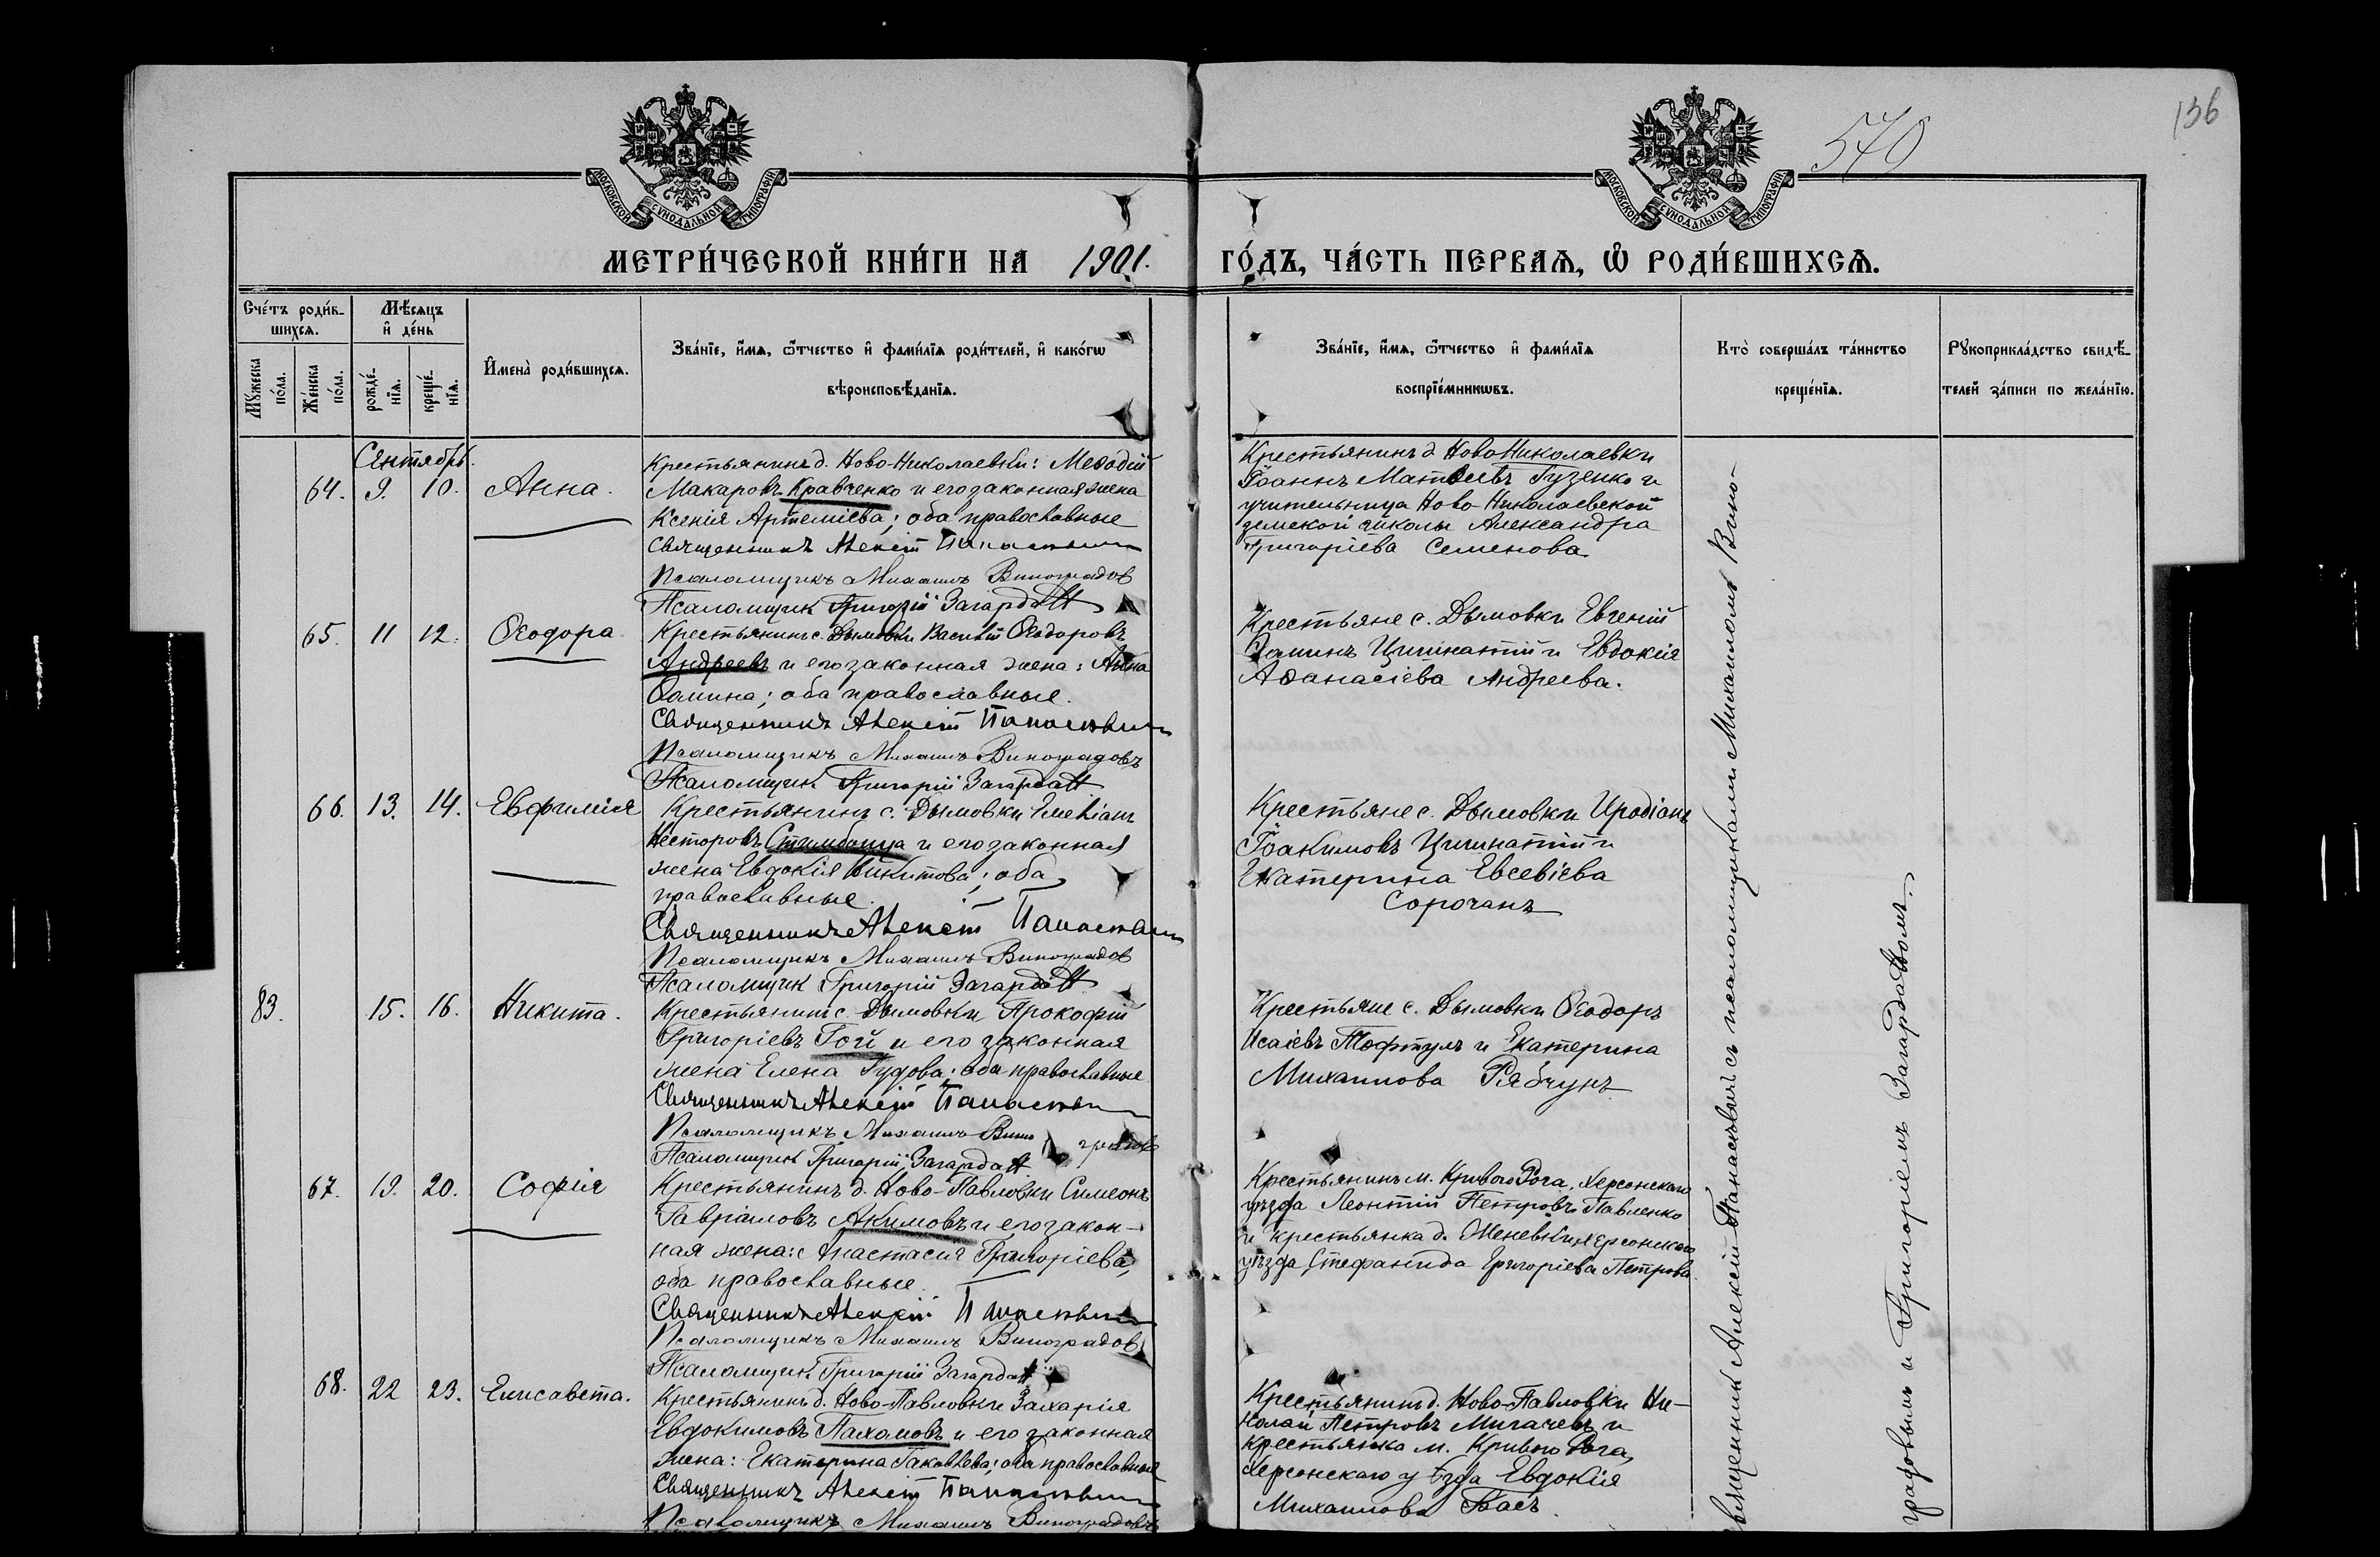 136
540
МОСКОВСКОЙ СѴНОДАЛЬНОЙ ТИПОГРАФІИ
МОСКОВСКОЙ СѴНОДАЛЬНОЙ ТИПОГРАФІИ
МЕТРИ́ЧЕСКОЙ КНИ́ГИ НА 1901.
ГО́ДЪ, ЧА́СТЬ ПЕРВАѦ, Ѽ РОДИ́ВШИХСѦ.
Сче́тъ роди́в-
шихсѧ.
Мꙋ́жеска
по́ла.
Же́нска
по́ла.
Мѣ́сѧцъ
и҆ де́нь
рожде́-
нїѧ.
креще́-
нїѧ.
И҆мена̀ роди́вшихсѧ.
Зва́нїе, и҆́мѧ, ѻ҆́тчество и҆ фами́лїѧ роди́телей, и҆ како́гѡ
вѣроисповѣ́данїѧ.
Зва́нїе, и҆́мѧ, ѻ҆́тчество и҆ фами́лїѧ
воспрїе́мникѡвъ.
Кто̀ соверша́лъ та́инство
креще́нїѧ.
Рꙋкоприкла́дство свидѣ́-
телей за́писи по жела́нїю.
Сентябрь.
64. 9. 10. Анна.
Крестьянинъ д. Ново-Николаевки: Меѳодій
Макаровъ Кравченко и его законная жена
Ксенія Артеміева; оба православные
Священникъ Алексій Панасевич
Псаломщикъ Михаилъ Виноградов
Псаломщик Григорій
Крестьянинъ д Ново Николаевки
Іоаннъ Матѳеевъ Гузенко и
учительница Ново-Николаевской
земской школы Александра
Григоріева Семенова.
65. 11 12. Ѳеодора
Крестьянинъ с. Дымовки Василій Ѳеодоровъ
Андреевъ и его законная жена: Анна
Ѳомина; оба православные.
Священникъ Алексій Панасевич
Псаломщикъ Михаилъ Виноградовъ
Псаломщик Григорій
Крестьяне с. Дымовки Евгеній
Ѳоминъ и Евдокія
Аѳанасіева Андреева.
66. 13. 14. Евфимія
Крестьянинъ с. Дымовки Емеліанъ
Несторовъ и его законная
жена Евдокія Никитова; оба
православные.
Священникъ Алексій Панасевич
Псаломщикъ Михаилъ Виноградов
Псаломщик Григорій
Крестьяне с. Дымовки Иродіонъ
Іоакимовъ и
Екатерина Евсевіева
Сорочанъ
83. 15. 16. Никита.
Крестьянинъ с. Дымовки Прокофій
Григоріевъ Гой и его законная
жена Елена Гудова; оба православные
Священникъ Алексій Панасевич
Псаломщикъ Михаилъ Виноградов
Псаломщик Григорій
Крестьяне с. Дымовки Ѳеодоръ
Исаіевъ Тофтулъ и Екатерина
Михаилова Рябчунъ
67. 19. 20. Софія
Крестьянинъ д. Ново-Павловки Симеонъ
Гавріиловъ Акимовъ и его закон-
ная жена: Анастасія Григоріева;
оба православные.
Священникъ Алексій Панасевич
Псаломщикъ Михаилъ Виноградов
Псаломщик Григорій
Крестьянинъ м. Кривого Рога, Херсонскаго
уѣзда Леонтій Петровъ Павленко
и крестьянка д. Херсонскаго
уѣзда Стефанида Григоріева Петрова.
68. 22 23. Елисавета.
Крестьянинъ д. Ново-Павловки Захарія
Евдокимовъ Пахомовъ и его законная
жена: Екатерина Іаковлева; оба православные
Священникъ Алексій Панасевич
Псаломщикъ Михаилъ Виноградовъ
Крестьянинъ д. Ново-Павловки Ни-
колай Петровъ Мигачевъ и
крестьянка м. Кривого Рога,
Херсонскаго уѣзда Евдокія
Михаилова Басъ.
Священникъ Алексій Панасевичъ съ псаломщиками Михаиломъ Вино-
градовымъ и Григоріемъ